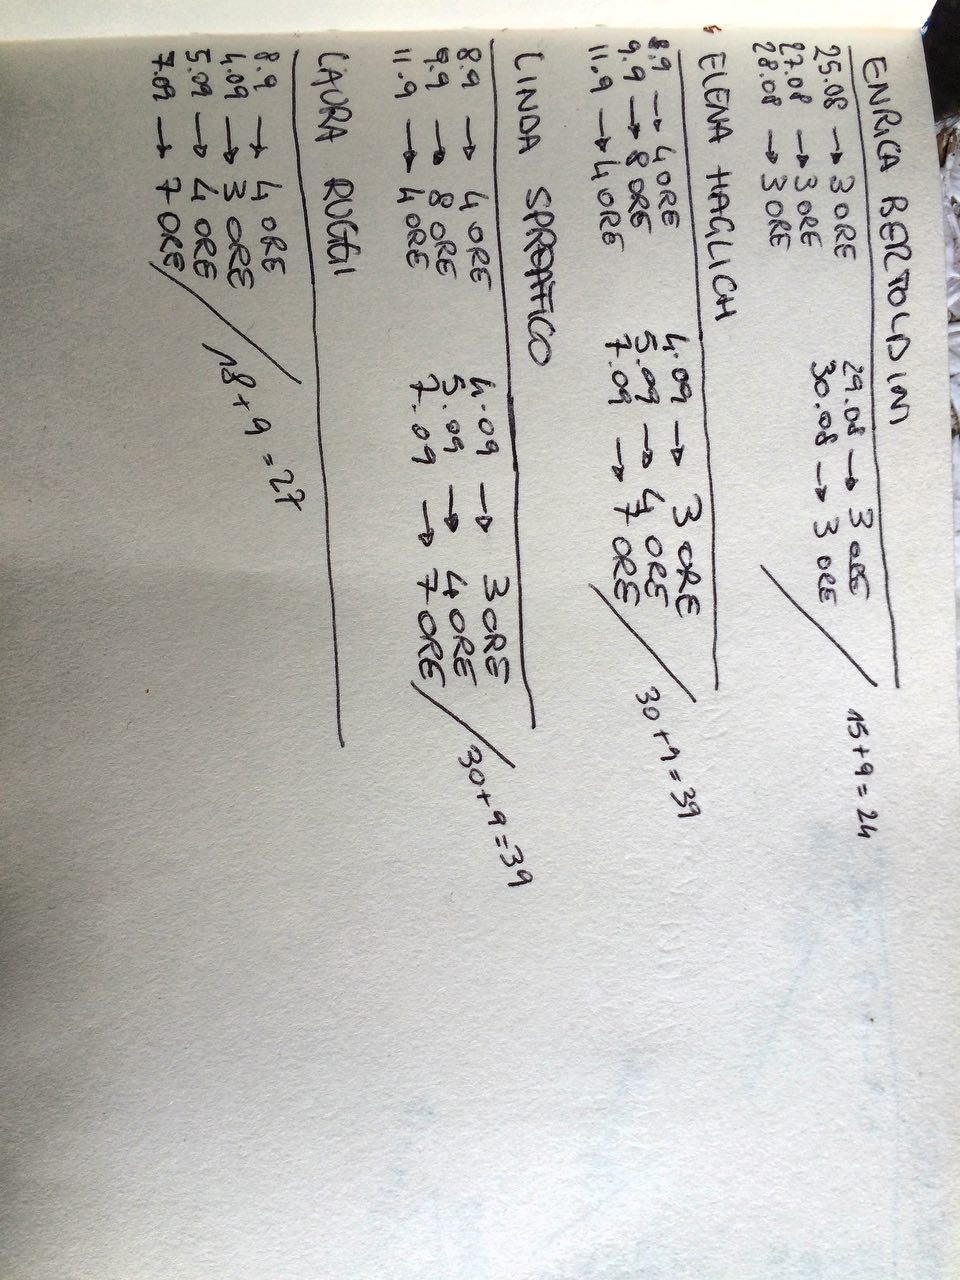 ENRICA BERTOLDINI
25.08 → 3 ORE
27.08 → 3 ORE
28.08 → 3 ORE
29.08 → 3 ORE
30.08 → 3 ORE
15+9=24
ELENA HAGLICH
8.9 → 4 ORE
9.9 → 8 ORE
11.9 → 4 ORE
4.09 → 3 ORE
5.09 → 4 ORE
7.09 → 7 ORE
30+9=39
LINDA
8.9 → 4 ORE
9.9 → 8 ORE
11.9 → 4 ORE
4.09 → 3 ORE
5.09 → 4 ORE
7.09 → 7 ORE
30+9=39
LAURA RUGGI
8.9 → 4 ORE
4.09 → 3 ORE
5.09 → 4 ORE
7.09 → 7 ORE
18+9=27